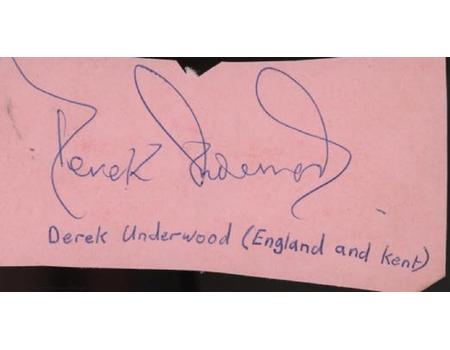 Derek Underwood
Derek Underwood (England and Kent)